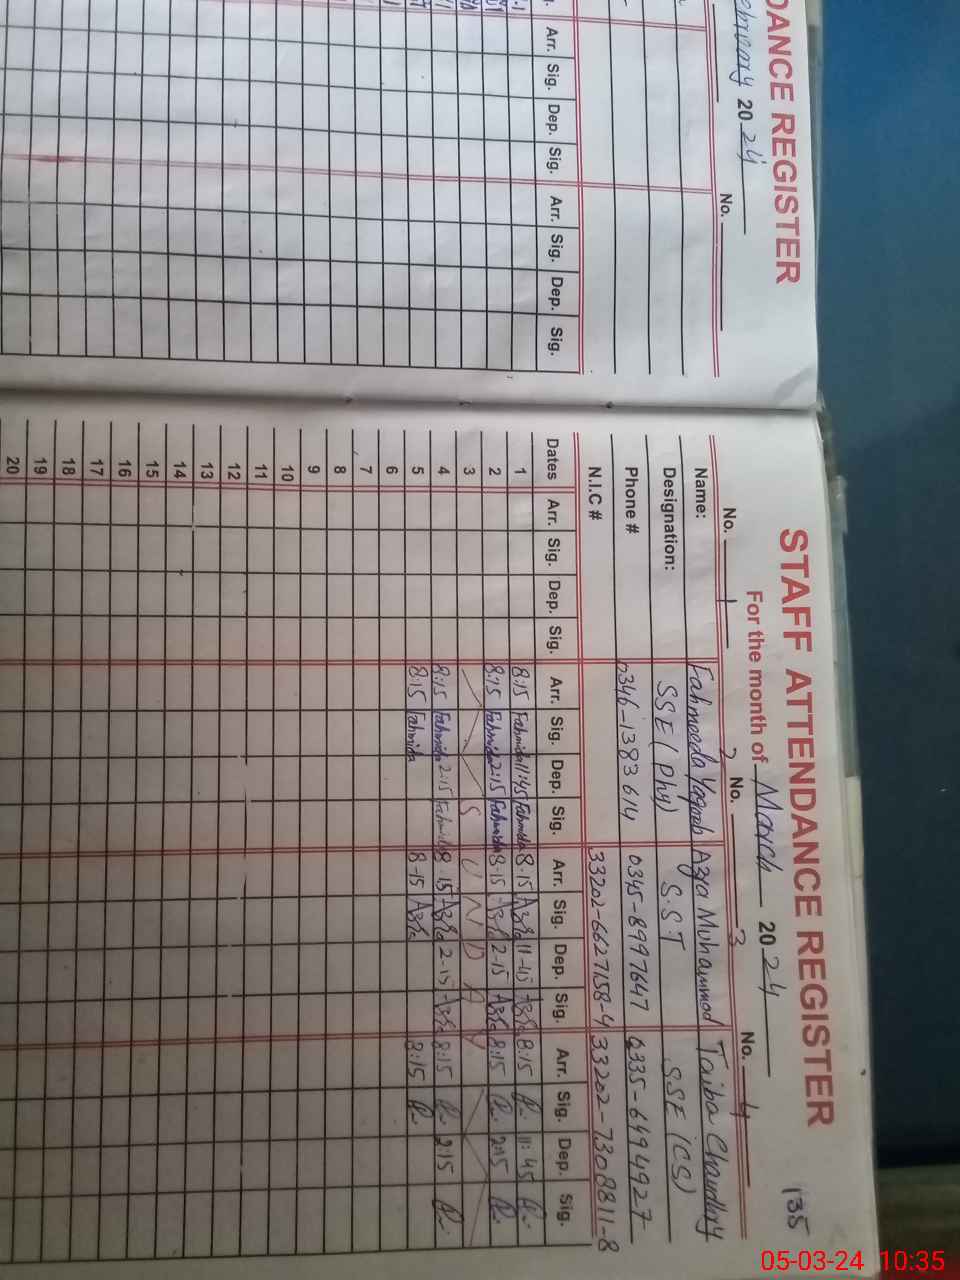 DANCE REGISTER
2024
No.
Arr. Sig. Dep. Sig. Arr. Sig. Dep. Sig.
135
STAFF ATTENDANCE REGISTER
For the month of March 2024
No. 1 2 No. 3 No. 4
Name: Fahmeeda Yaqoob Azra Mohammad Taiba Chaudhry
Designation: SSE (Phy) S.S.T SSE (CS)
Phone # 0346-1383614 0345-8997647 0335-6494927
N.I.C # 33202-6627158-4 33202-7308811-8
Dates Arr. Sig. Dep. Sig. Arr. Sig. Dep. Sig. Arr. Sig. Dep. Sig. Arr. Sig. Dep. Sig.
1 8:15 Fahmida 11:45 Fahmida 8-15 Azra 11-45 Azra 8:15 11:45
2 8:15 Fahmida 2:15 Fahmida 8-15 Azra 2-15 Azra 8:15 2:15
3 SUNDAY
4 8:15 Fahmida 2:15 Fahmida 8-15 Azra 2-15 Azra 8:15 2:15
5 8:15 Fahmida 8-15 Azra 8:15
6
7
8
9
10
11
12
13
14
15
16
17
18
19
20
05-03-24 10:35